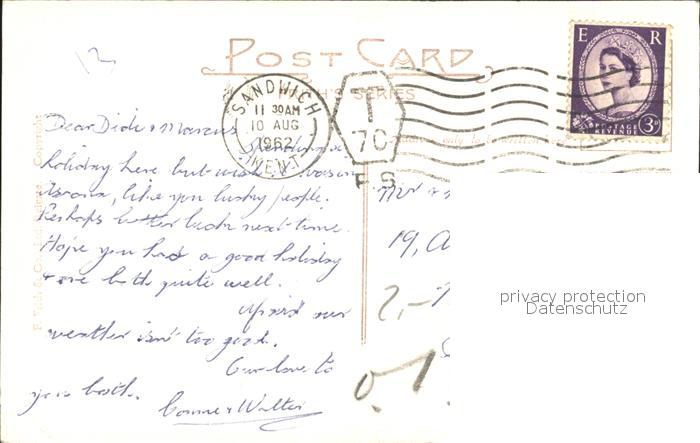 POST CARD
SERIES
E R
POSTAGE
REVENUE
3D
SANDWICH
11 30 AM
10 AUG
1962
KENT
T
7C
F S
Dear Dick & Marcus
holiday here but wish I was in
Ascona, like you lucky people.
Perhaps better luck next time.
Hope you had a good holiday
& are both quite well.
Afraid our
weather isn't too good.
Our love to
you both.
Connie & Walter
Mr &
19, A
2,-
0.7
privacy protection
Datenschutz